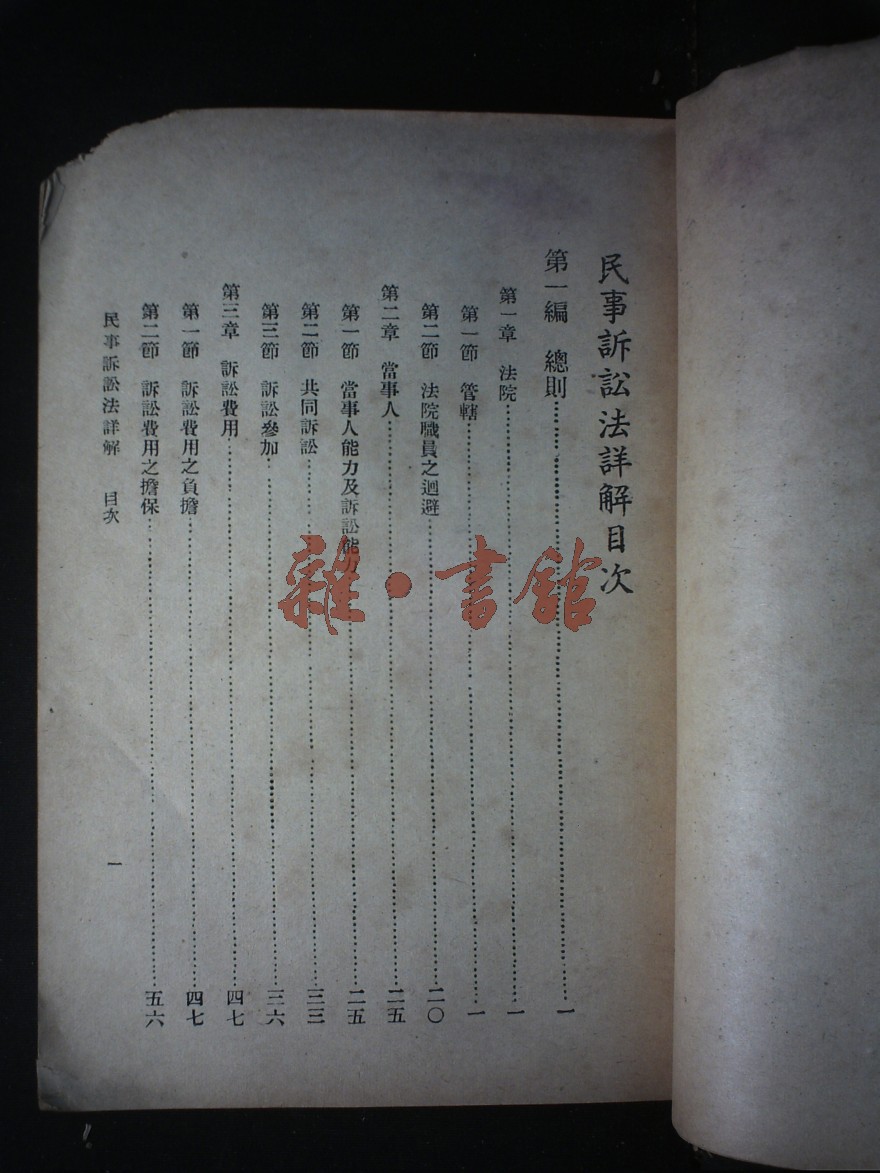 民事訴訟法詳解目次
第一編 總則……一
第一章 法院……一
第一節 管轄……一
第二節 法院職員之迴避……二〇
第二章 當事人……二五
第一節 當事人能力及訴訟能力……二五
第二節 共同訴訟……三三
第三節 訴訟參加……三六
第三章 訴訟費用……四七
第一節 訴訟費用之負擔……四七
第二節 訴訟費用之擔保……五六
民事訴訟法詳解 目次 一
雜·書館